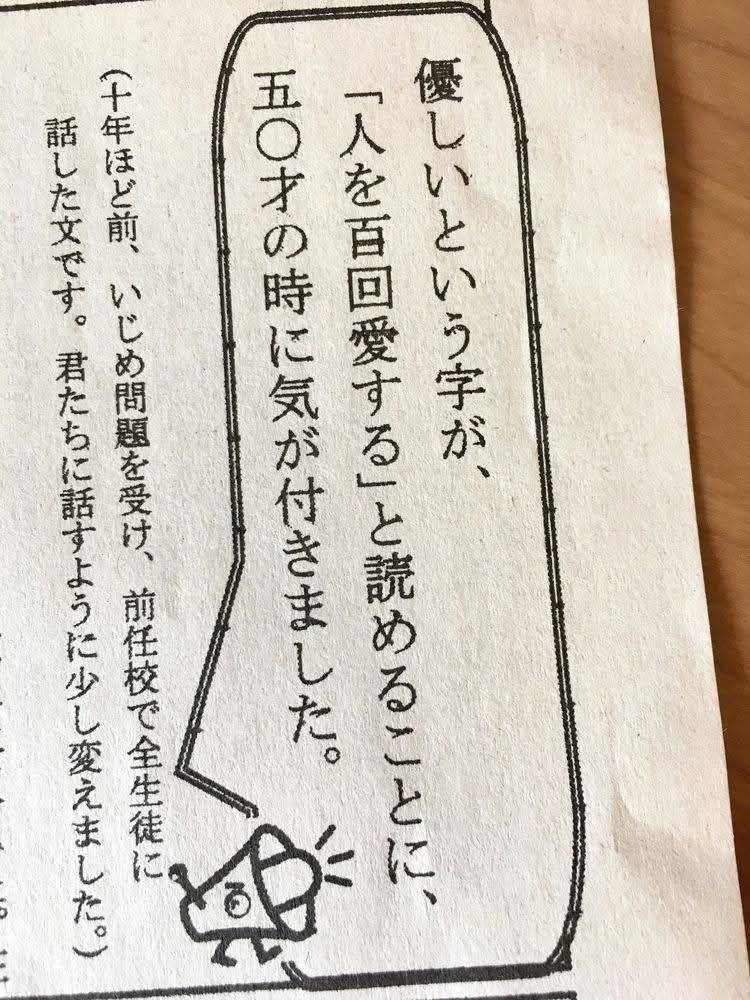 優しいという字が、
「人を百回愛する」と読めることに、
五〇才の時に気が付きました。
（十年ほど前、いじめ問題を受け、前任校で全生徒に
話した文です。君たちに話すように少し変えました。）